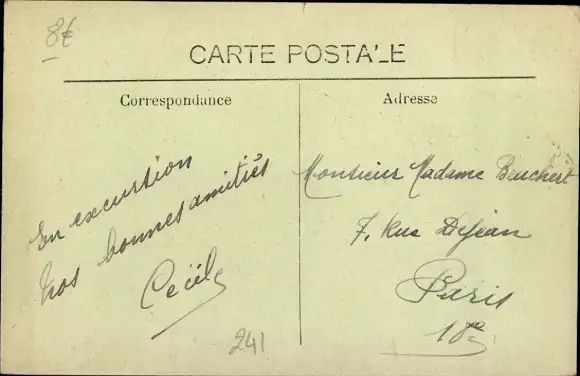 8€
CARTE POSTALE
Correspondance
Adresse
En excursion
nos bonnes amitiés
Cécile
241
Monsieur Madame Beuchert
7, Rue Dejean
Paris
18e